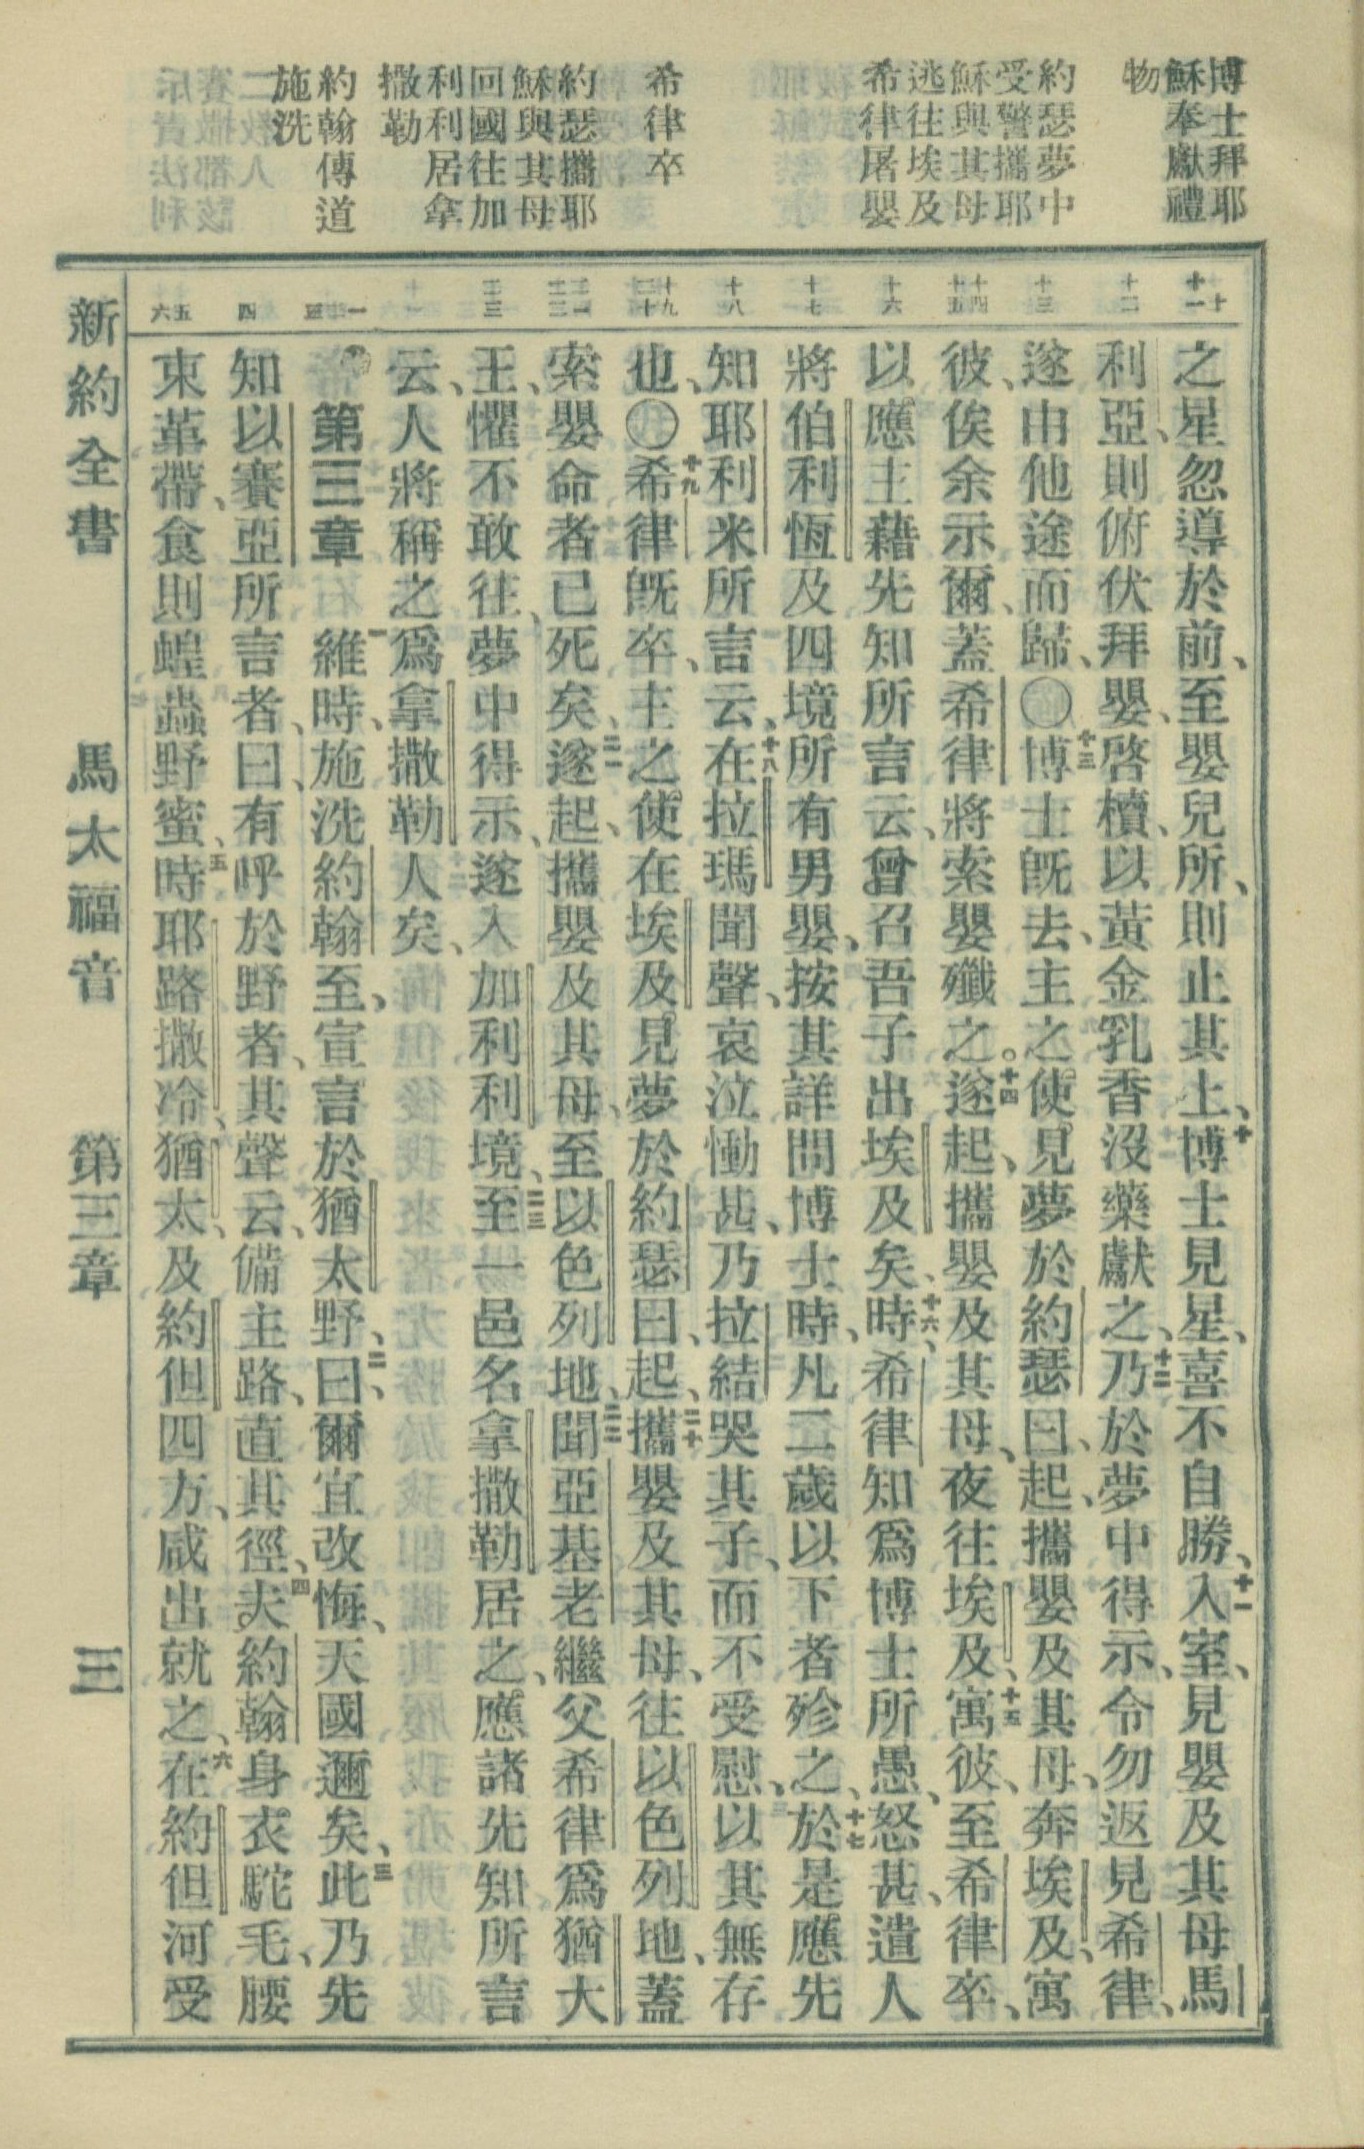 博士拜耶
穌奉獻禮
物
約瑟夢中
受警攜耶
穌與其母
逃往埃及
希律屠嬰
希律卒
約瑟攜耶
穌與其母
回國往加
利利居拿
撒勒
約翰傳道
施洗
十 十一
十二
十三
十四 十五
十六
十七
十八
十九 二十
二一 二二
二三
一 二 三
四
五 六
之星忽導於前、至嬰兒所、則止其上、十博士見星、喜不自勝、十一入室、見嬰及其母馬
利亞、則俯伏拜嬰、啓櫝、以黃金乳香沒藥獻之、十二乃於夢中得示、令勿返見希律、
遂由他途而歸、〇十三博士既去、主之使見夢於約瑟曰、起、攜嬰及其母、奔埃及、寓
彼、俟余示爾、蓋希律將索嬰殲之。十四遂起、攜嬰及其母、夜往埃及、十五寓彼、至希律卒、
以應主藉先知所言云、曾召吾子出埃及矣、十六時、希律知爲博士所愚、怒甚、遣人
將伯利恆及四境所有男嬰、按其詳問博士時、凡二歲以下者殄之、十七於是應先
知耶利米所言云、十八在拉瑪聞聲、哀泣慟甚、乃拉結哭其子、而不受慰、以其無存
也、〇十九希律既卒、主之使在埃及見夢於約瑟曰、二十起、攜嬰及其母、往以色列地、蓋
索嬰命者已死矣、二一遂起、攜嬰及其母、至以色列地、二二聞亞基老繼父希律爲猶大
王、懼不敢往、夢中得示、遂入加利利境、二三至一邑名拿撒勒居之、應諸先知所言
云、人將稱之爲拿撒勒人矣、
第三章 一維時、施洗約翰至、宣言於猶太野、二曰、爾宜改悔、天國邇矣、三此乃先
知以賽亞所言者、曰、有呼於野者、其聲云、備主路、直其徑、四夫約翰身衣駝毛、腰
束革帶、食則蝗蟲野蜜、五時耶路撒冷、猶太、及約但四方、咸出就之、六在約但河受
新約全書 馬太福音 第三章 三